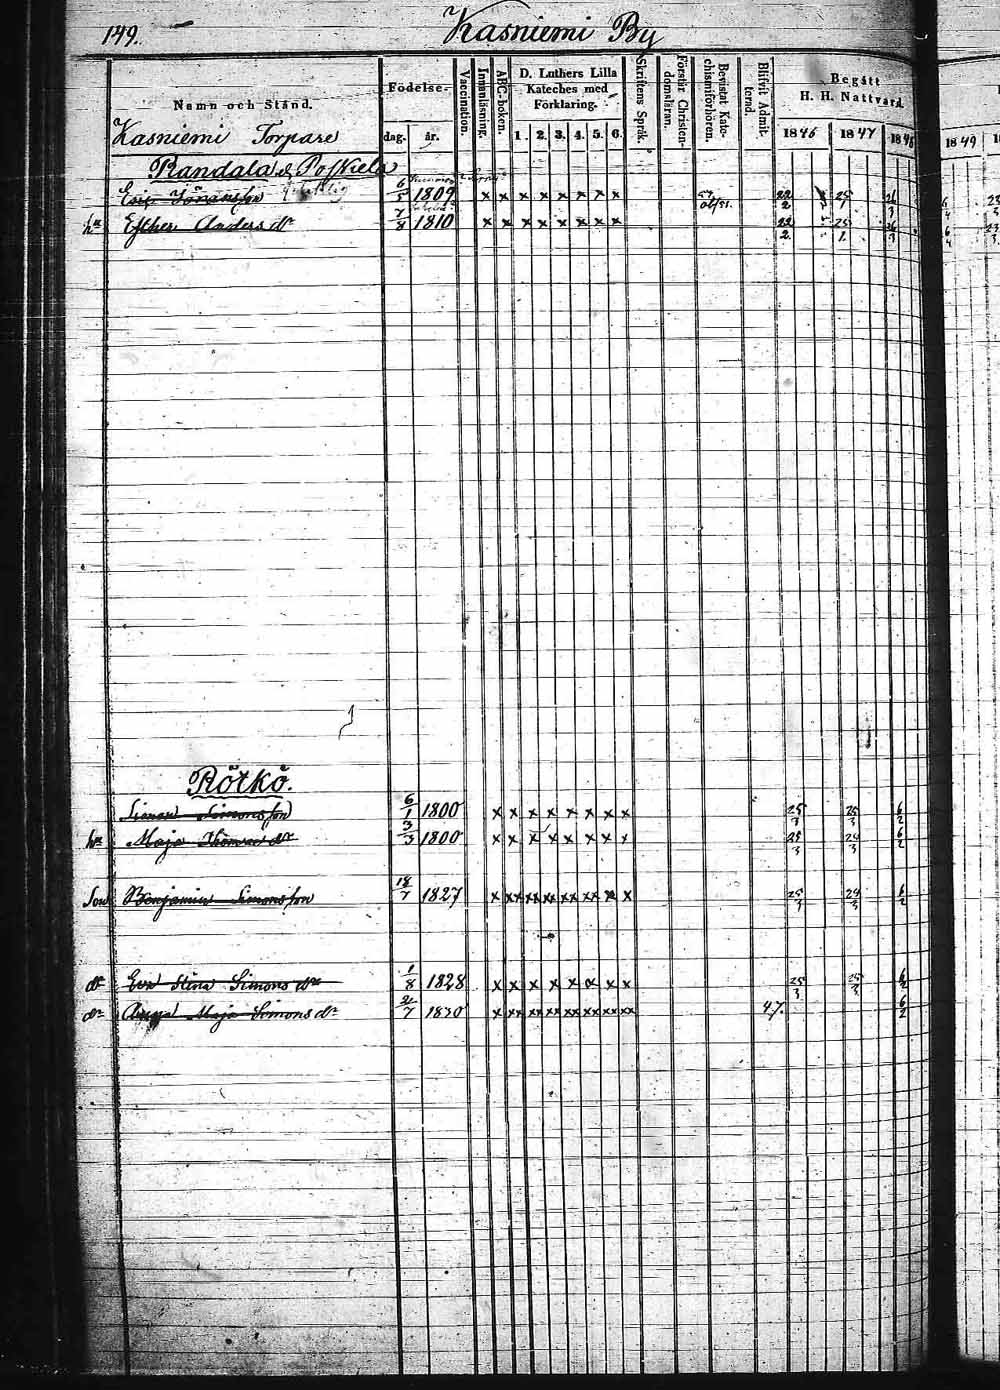 149.
Kasniemi By
Namn och Stånd.
Födelse-
dag. år.
Vaccination.
Innanläsning.
ABC-boken.
D. Luthers Lilla
Kateches med
Förklaring.
1. 2. 3. 4. 5. 6.
Skriftens Språk.
Förstår Christen-
domsläran.
Bevistat Kate-
chismiförhören.
Blifvit Admit-
terad.
Begått
H. H. Nattvard.
1846 1847 1848
1849
Kasniemi Torpare
Randala &
Eric Jöransson 6/5 1809 x x x x x x x x
hu Esther Anders dr 7/8 1810 x x x x x x x x
Rötkö.
Simon Simonsson 6/1 1800 x x x x x x x x 25/3 25/3 6/2
hu Maja Thomas dr 3/3 1800 x x x x x x x x 25/3 6/2
Son Benjamin Simonsson 18/7 1827 x xx xx xx xx xx x x 25/3 6/2
dr Eva Stina Simons dr 1/8 1828 x x x x x x x x 25/3 25/3 6/2
dr Maja Simons dr 1830 x xx xx xx xx xx xx xx 47. 6/2